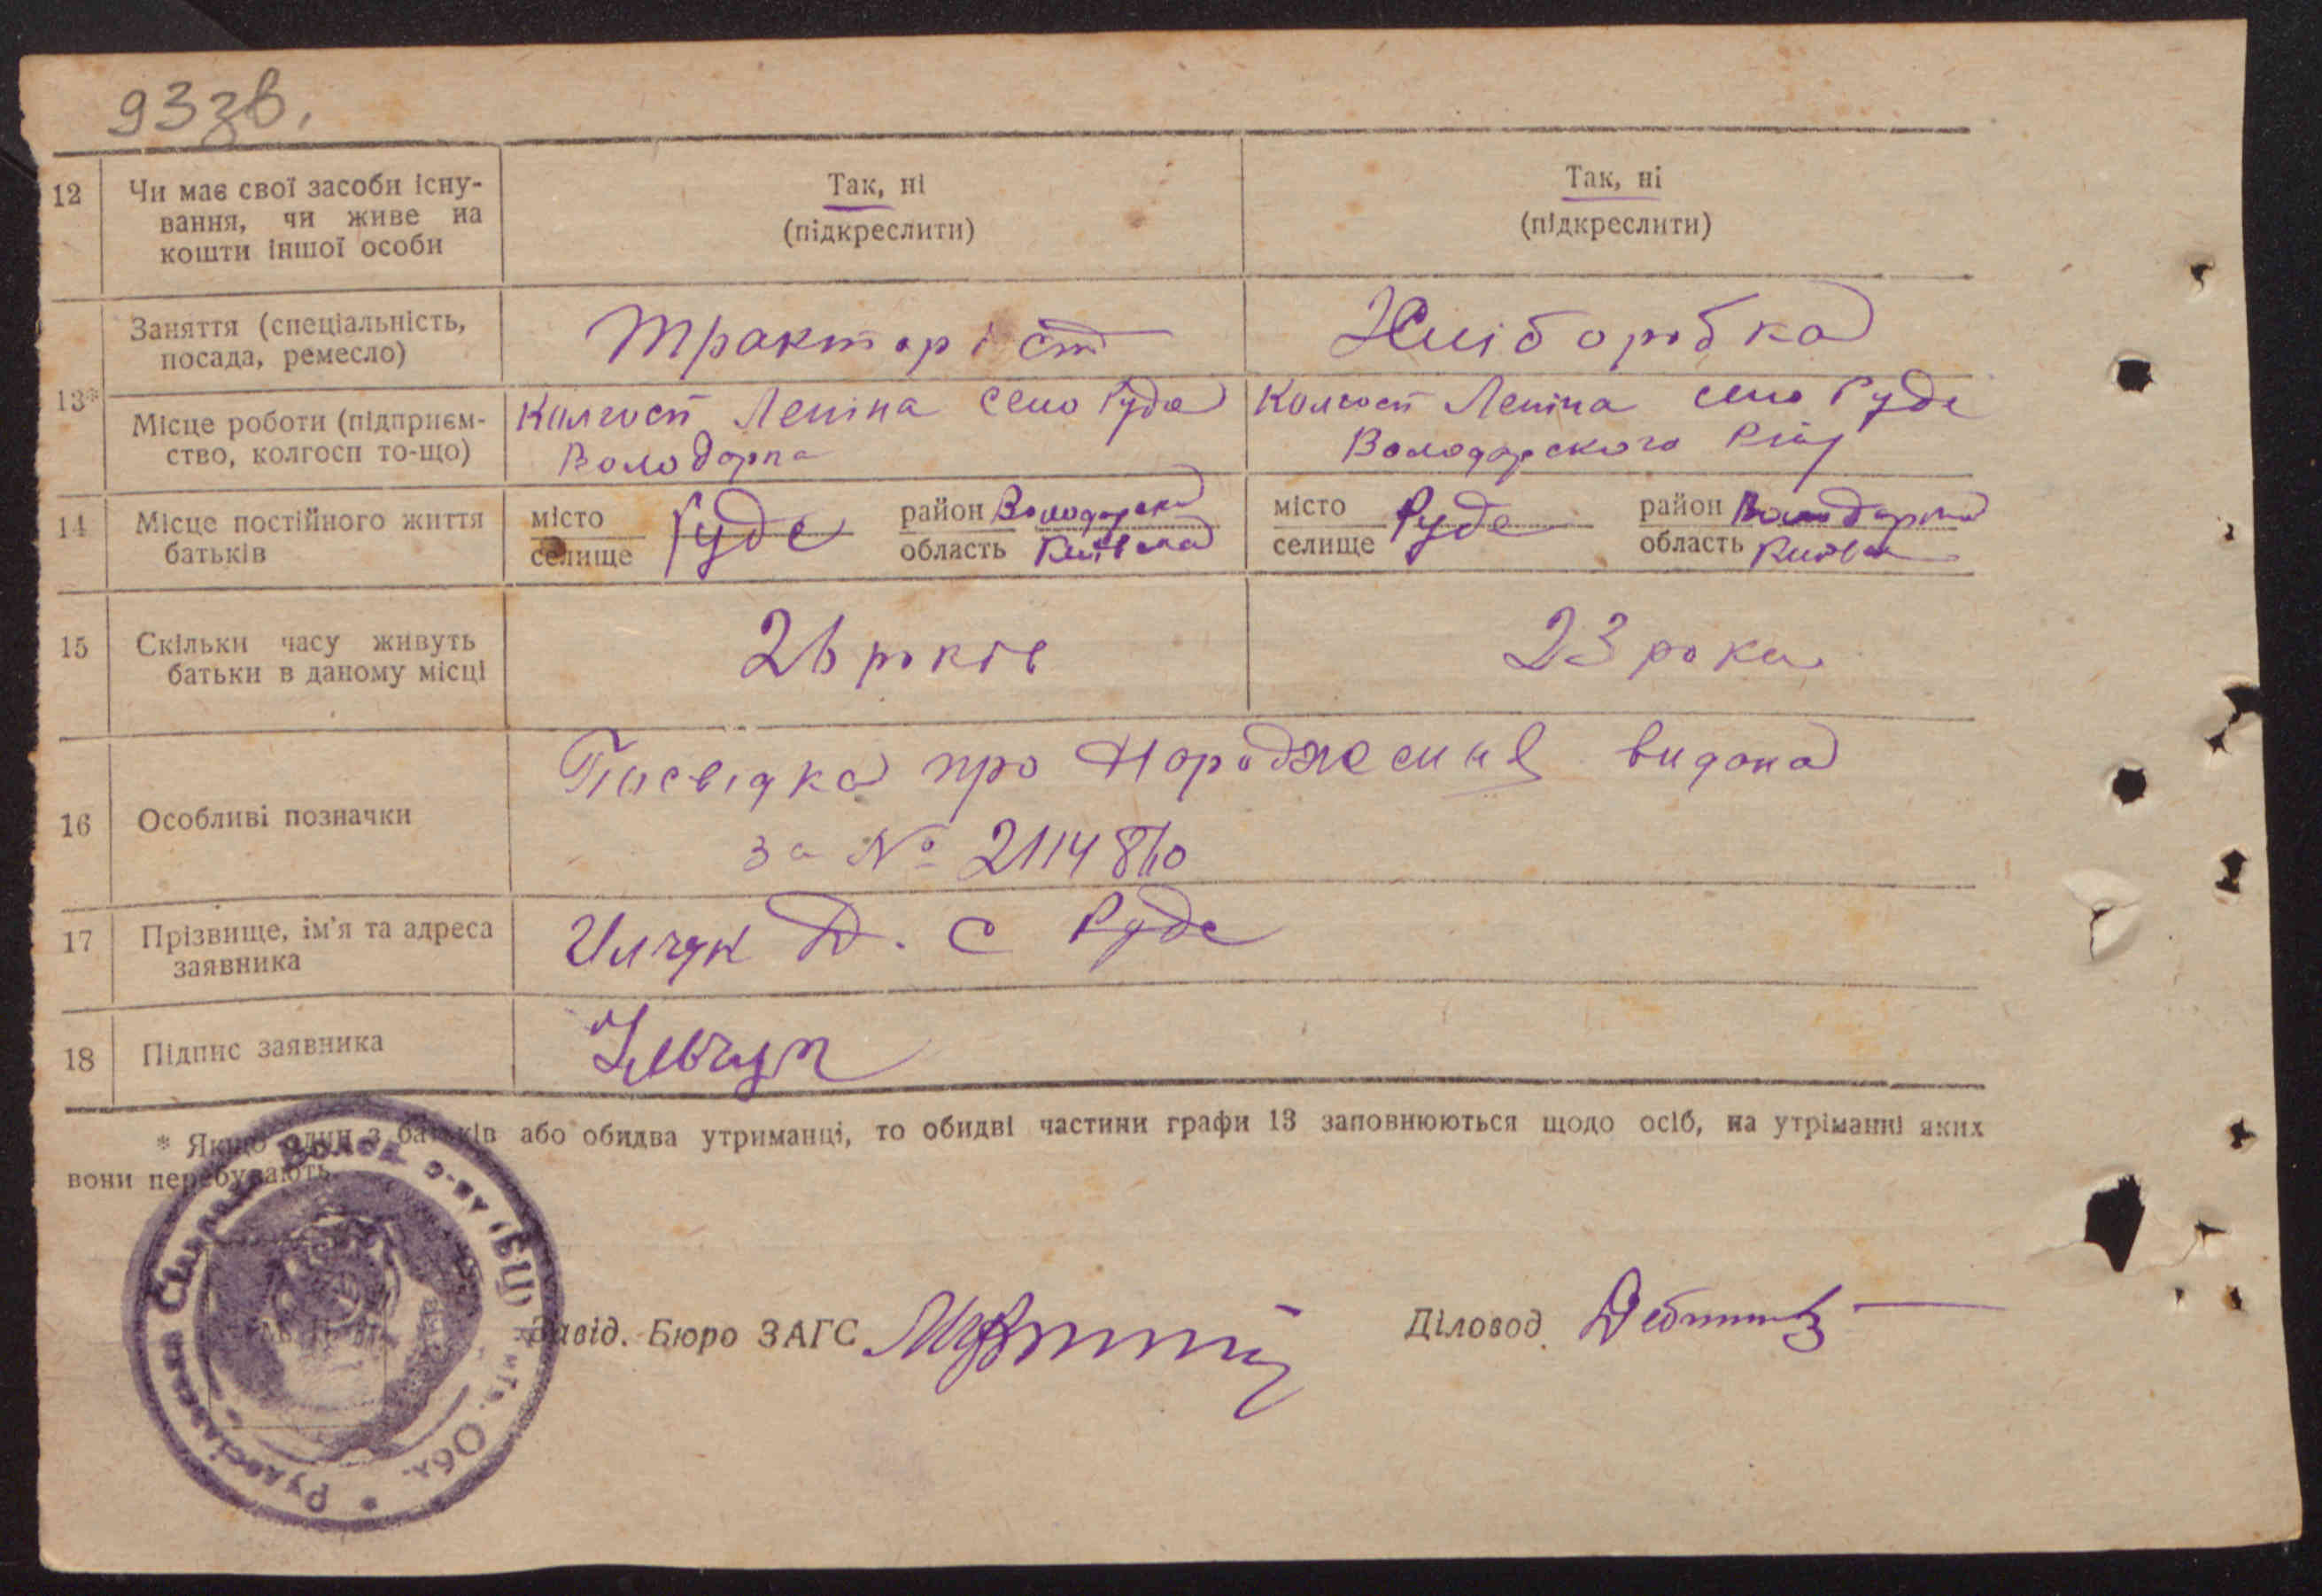 93зв.
12 Чи має свої засоби існу-
вання, чи живе на
кошти іншої особи
Так, ні
(підкреслити)
Так, ні
(підкреслити)
13*
Заняття (спеціальність,
посада, ремесло)
Тракторіст
Хліборобка
Місце роботи (підприєм-
ство, колгосп то-що)
Колгосп Леніна село Руда
Володарка
Колгосп Леніна село Руда
Володарского Рай
14 Місце постійного життя
батьків
місто
селище
Руда
район Володарка
область Київска
місто
селище
Руда
район Володарка
область
15 Скільки часу живуть
батьки в даному місці
26 років
23 роки
16 Особливі позначки
Посвідка про Нородження видона
за № 21148
17 Прізвище, ім'я та адреса
заявника
Илчук Д. с Руда
18 Підпис заявника
Ильчук
* Якщо один з батьків або обидва утриманці, то обидві частини графи 13 заповнюються щодо осіб, на утріманні яких
вони перебувають.
Завід. Бюро ЗАГС
Діловод
Рудосільська Сільрада Волод. р-ну (БЦ) Київ. Обл. *